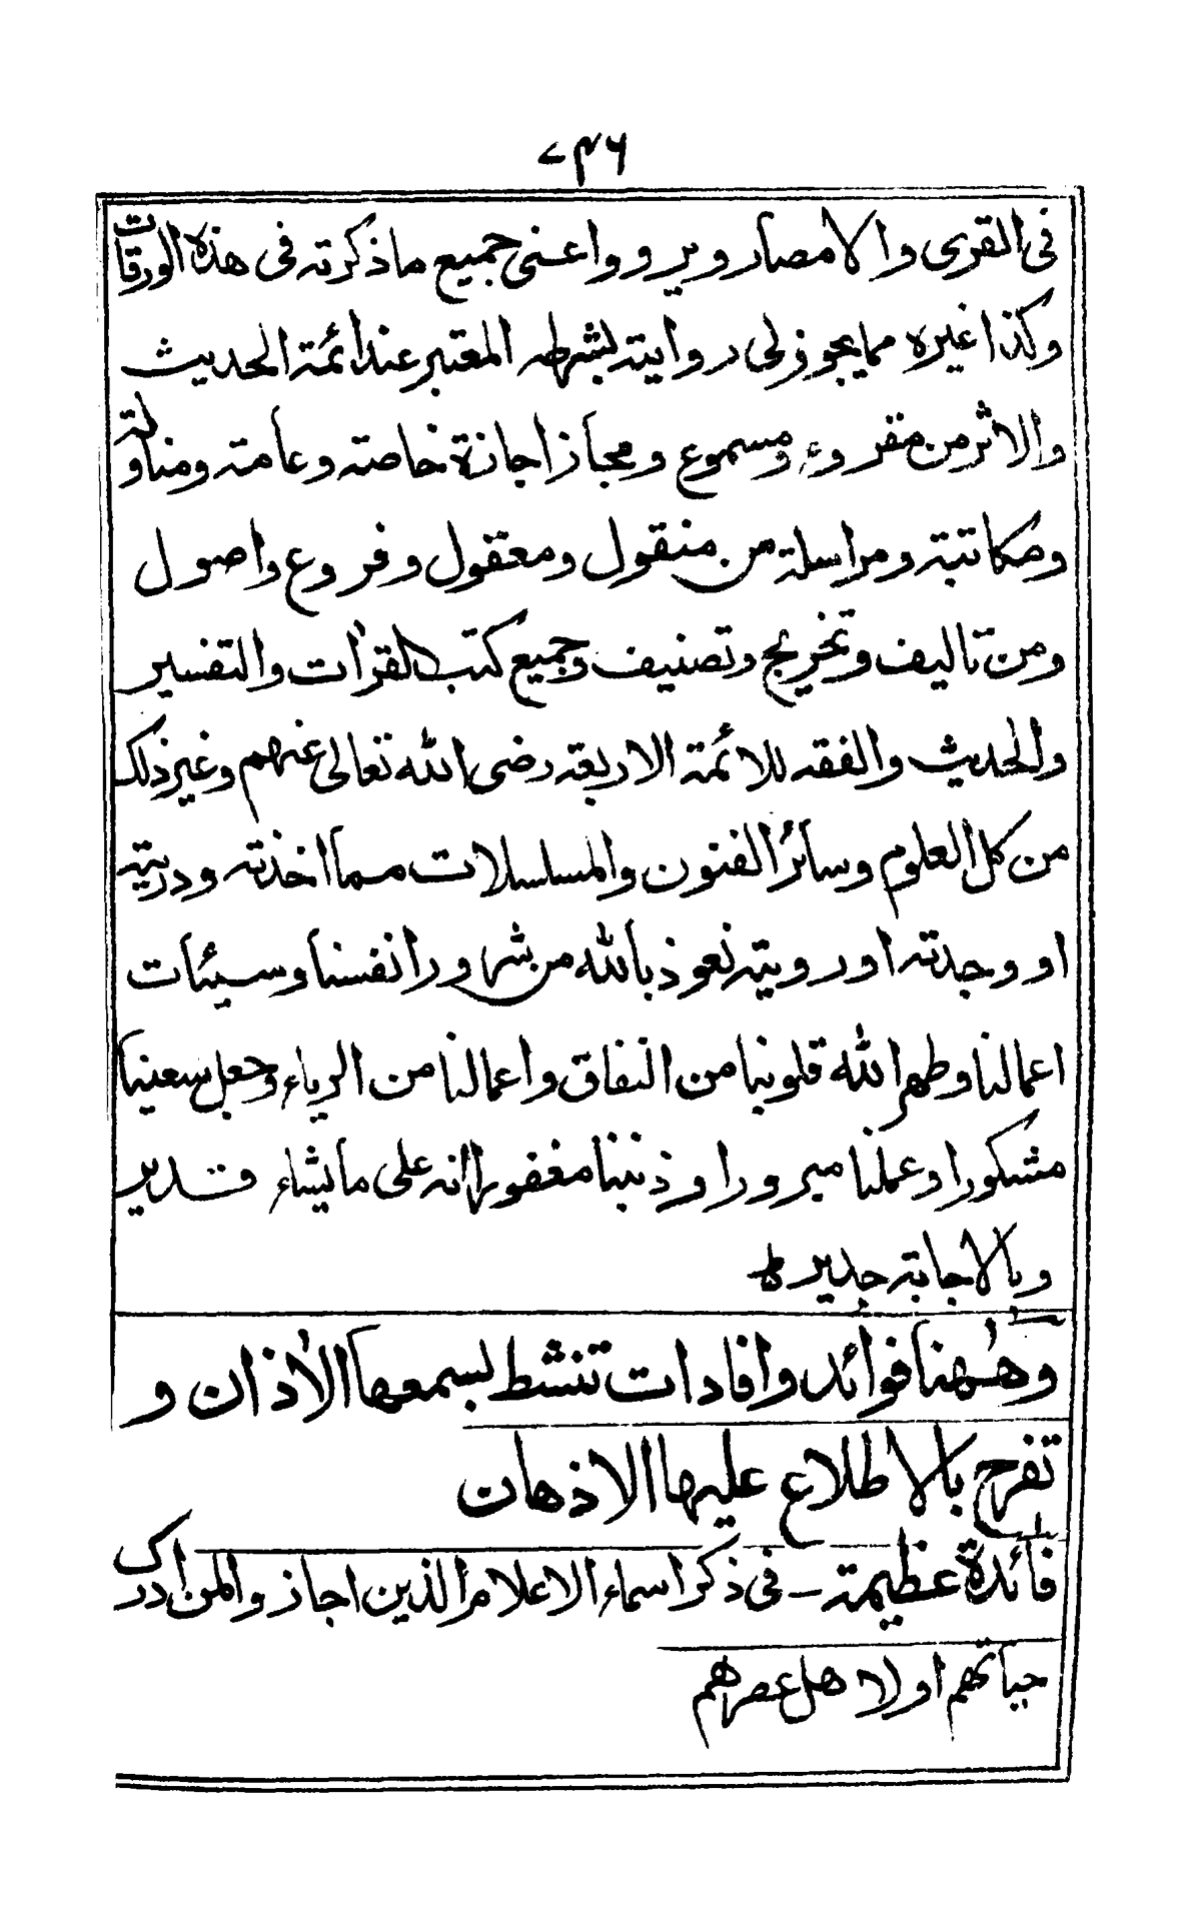 ۷۴۶
فی القری والامصار ویرووا عنی جمیع ما ذکرته فی هذه الورقات
وکذا غیره مما یجوز لی روایته بشرطه المعتبر عند ائمة الحدیث
والاثر من مقروء ومسموع ومجاز اجازة خاصة وعامة ومناولة
ومکاتبة ومراسلة من منقول ومعقول وفروع واصول
ومن تالیف وتخریج وتصنیف وجمیع کتب القرأت والتفسیر
والحدیث والفقه للائمة الاربعة رضی الله تعالی عنهم وغیر ذلک
من کل العلوم وسائر الفنون والمسلسلات مما اخذته ودریته
او وجدته او رویته نعوذ بالله من شرور انفسنا وسیئات
اعمالنا وطهر الله قلوبنا من النفاق واعمالنا من الریاء وجعل سعینا
مشکورا وعملنا مبرورا وذنبنا مغفورا انه علی ما یشاء قدیر
وبالاجابة جدیر ط
وههنا فوائد وافادات تنشط بسمعها الأذان و
تفرح بالاطلاع علیها الاذهان
فائدة عظیمة ـ فی ذکر اسماء الاعلام الذین اجازوا لمن ادرک
حیاتهم او لاهل عصرهم